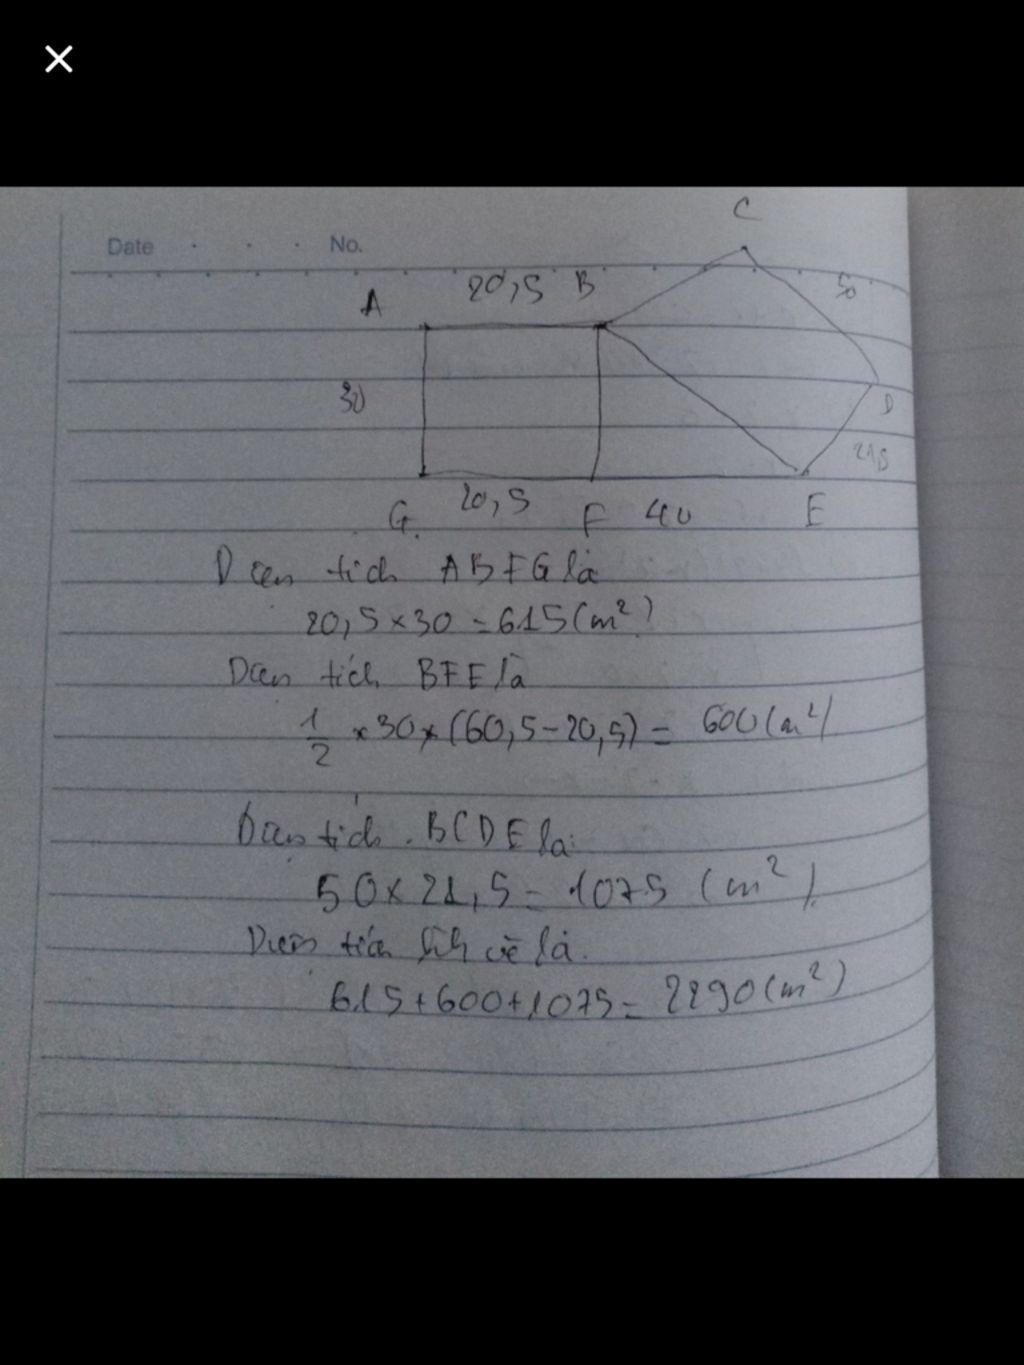 Date No.
C
20,5 B
50
A
30
D
21,5
20,5
G F 40 E
Diện tích ABFG là
20,5 × 30 = 615 (m²)
Diện tích BFE là
1/2 × 30 × (60,5 - 20,5) = 600 (m²)
Diện tích BCDE là
50 × 21,5 = 1075 (m²).
Diện tích hình vẽ là.
615 + 600 + 1075 = 2290 (m²)